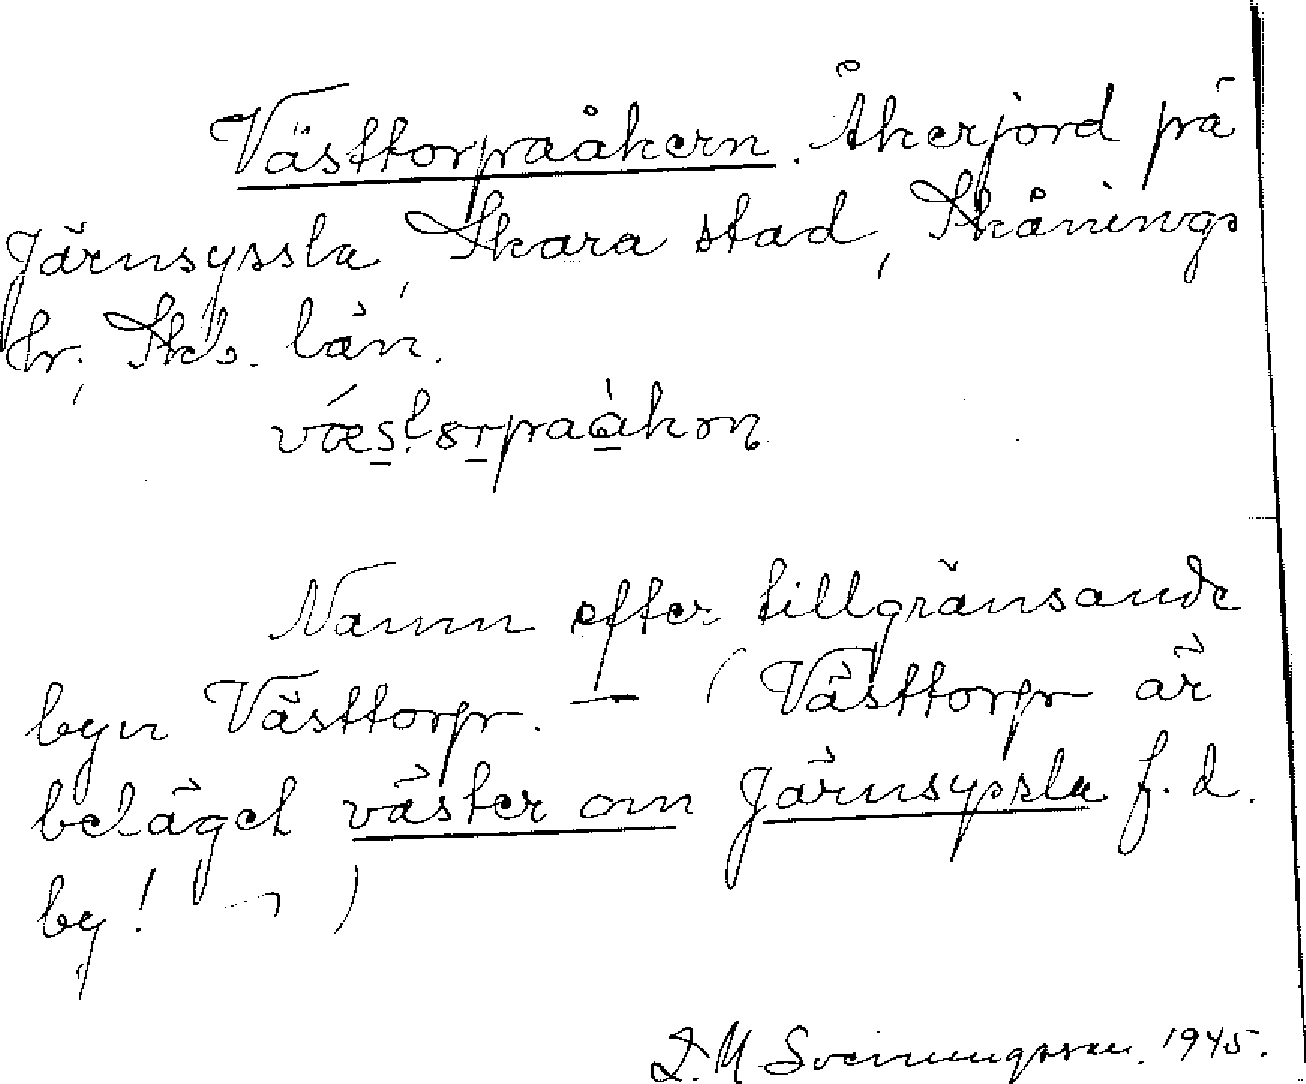 Västtorpaåkern. Åkerjord på
Järnsyssla, Skara stad, Skånings
hr; Skb. län.
Namn efter tillgränsande
byn Västtorp. — (Västtorp är
beläget väster om Järnsyssla f. d.
by! ¬ )
D. M Sveinungssen. 1945.